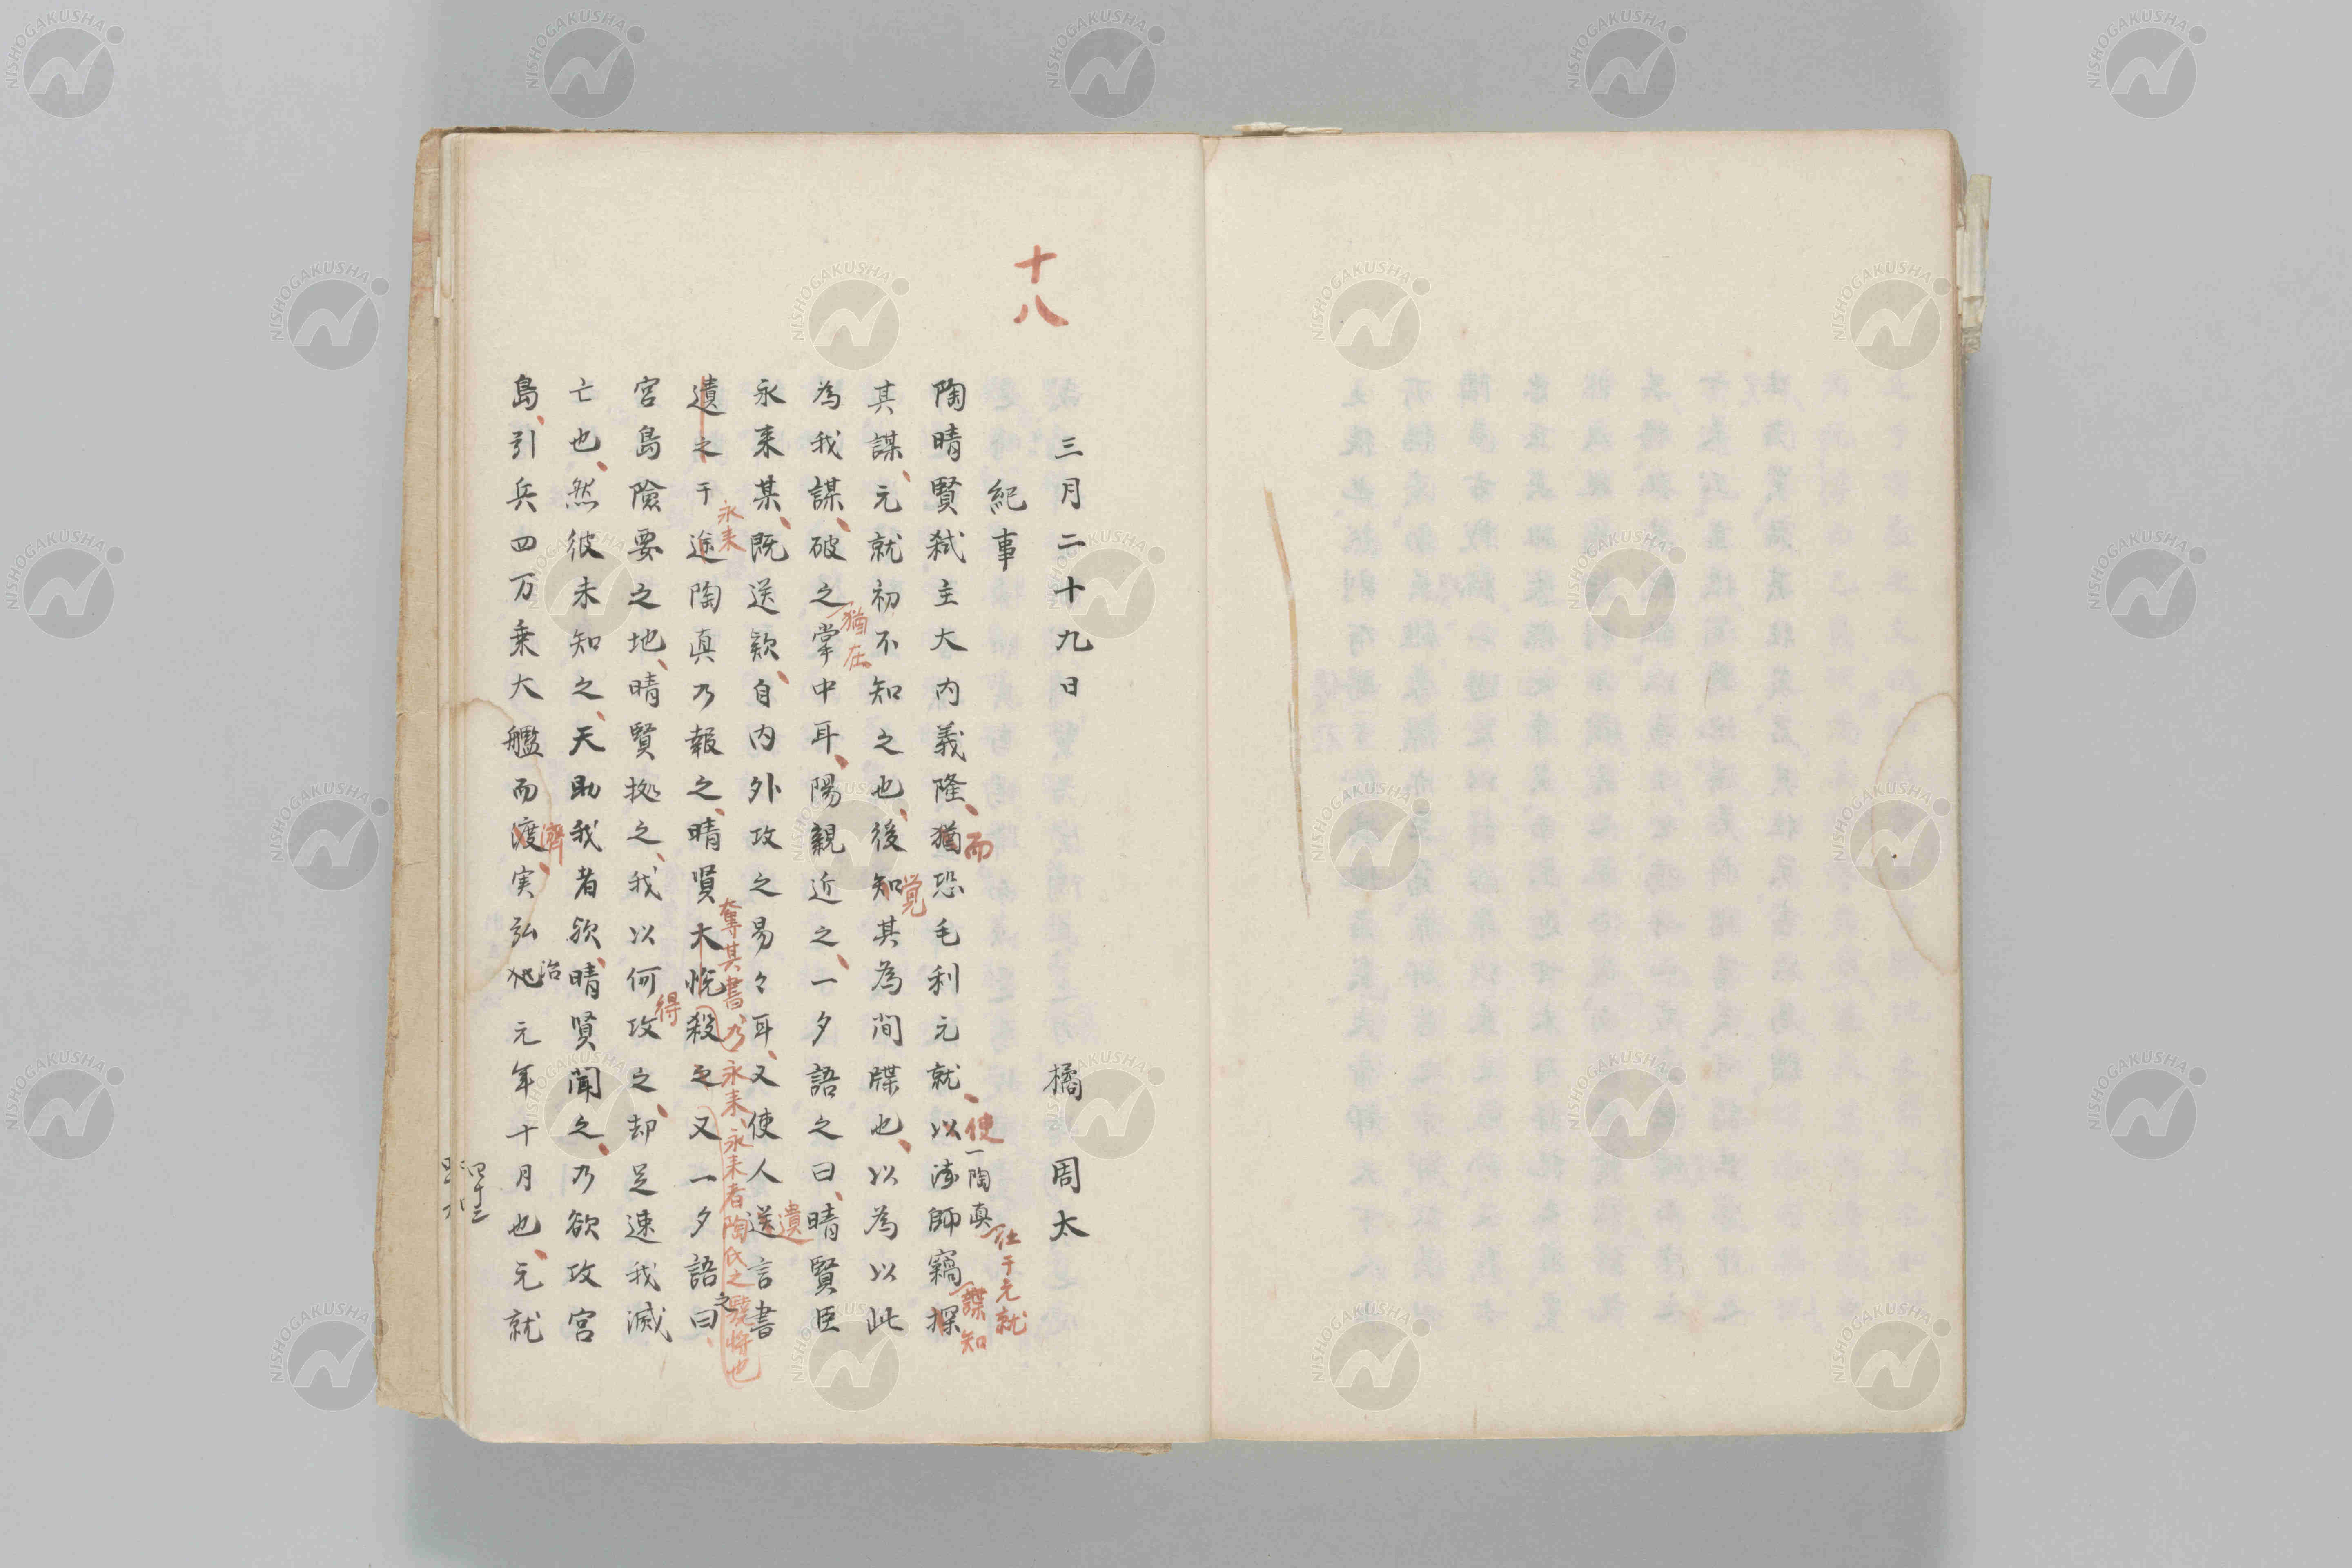 十八
三月二十九日 橘周太
紀事
陶晴賢弑主大内義隆、猶恐毛利元就、以法師竊探
而
使
一陶真
仕于元就
諜知
其謀、元就初不知之也、後知其為間牒也、以為以此
覚
為我謀、破之掌中耳、陽親近之、一夕語之曰、晴賢臣
猶在
永来某、既送欵、自内外攻之易々耳、又使人送言書
遺
遺之于途陶真乃報之、晴賢大悦殺之又一夕語曰、
永来
奪其書、乃永来、永来者陶氏之驍将也
之
宮島險要之地、晴賢拠之、我以何攻之、却足速我滅
得
亡也、然彼未知之、天助我者欤、晴賢聞之、乃欲攻宮
島、引兵四万乗大艦而渡、実弘 元年十月也、元就
濟
治
四十三